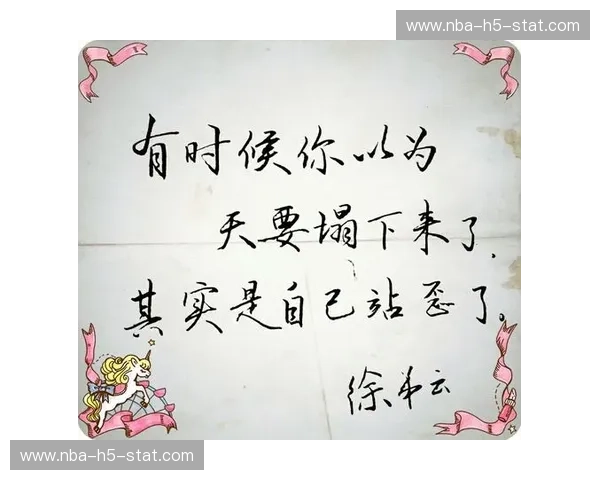 www.nba-h5-stat.com
有时候你以为
天要塌下来了,
其实是自己站歪了。
徐弟云
www.nba-h5-stat.com